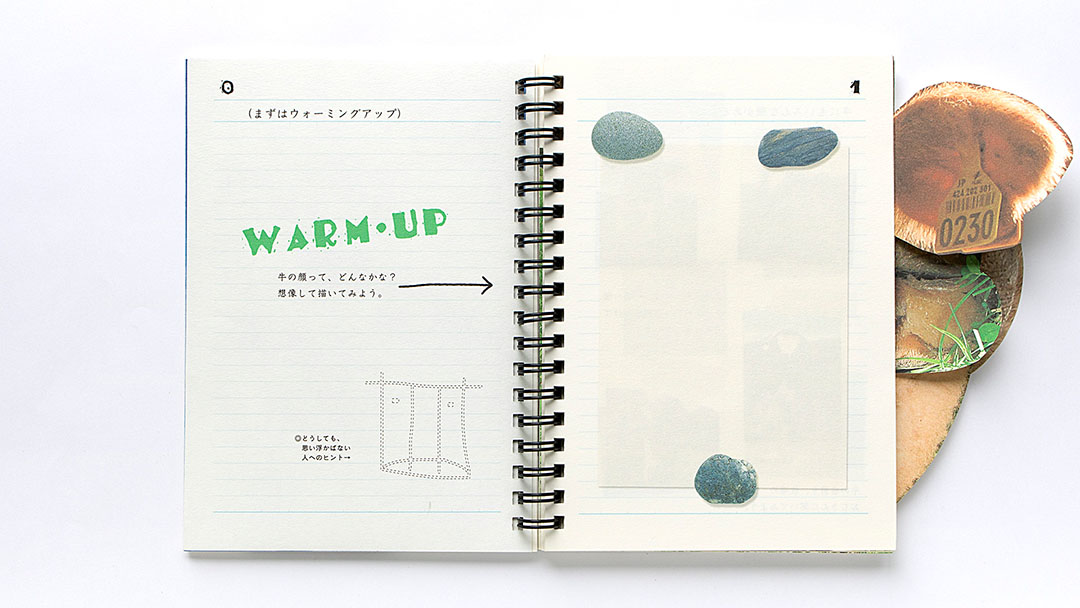 0
(まずはウォーミングアップ)
WARM•UP
牛の顔って、どんなかな?
想像して描いてみよう。
◎どうしても、
思い浮かばない
人へのヒント→
1
JP
0230